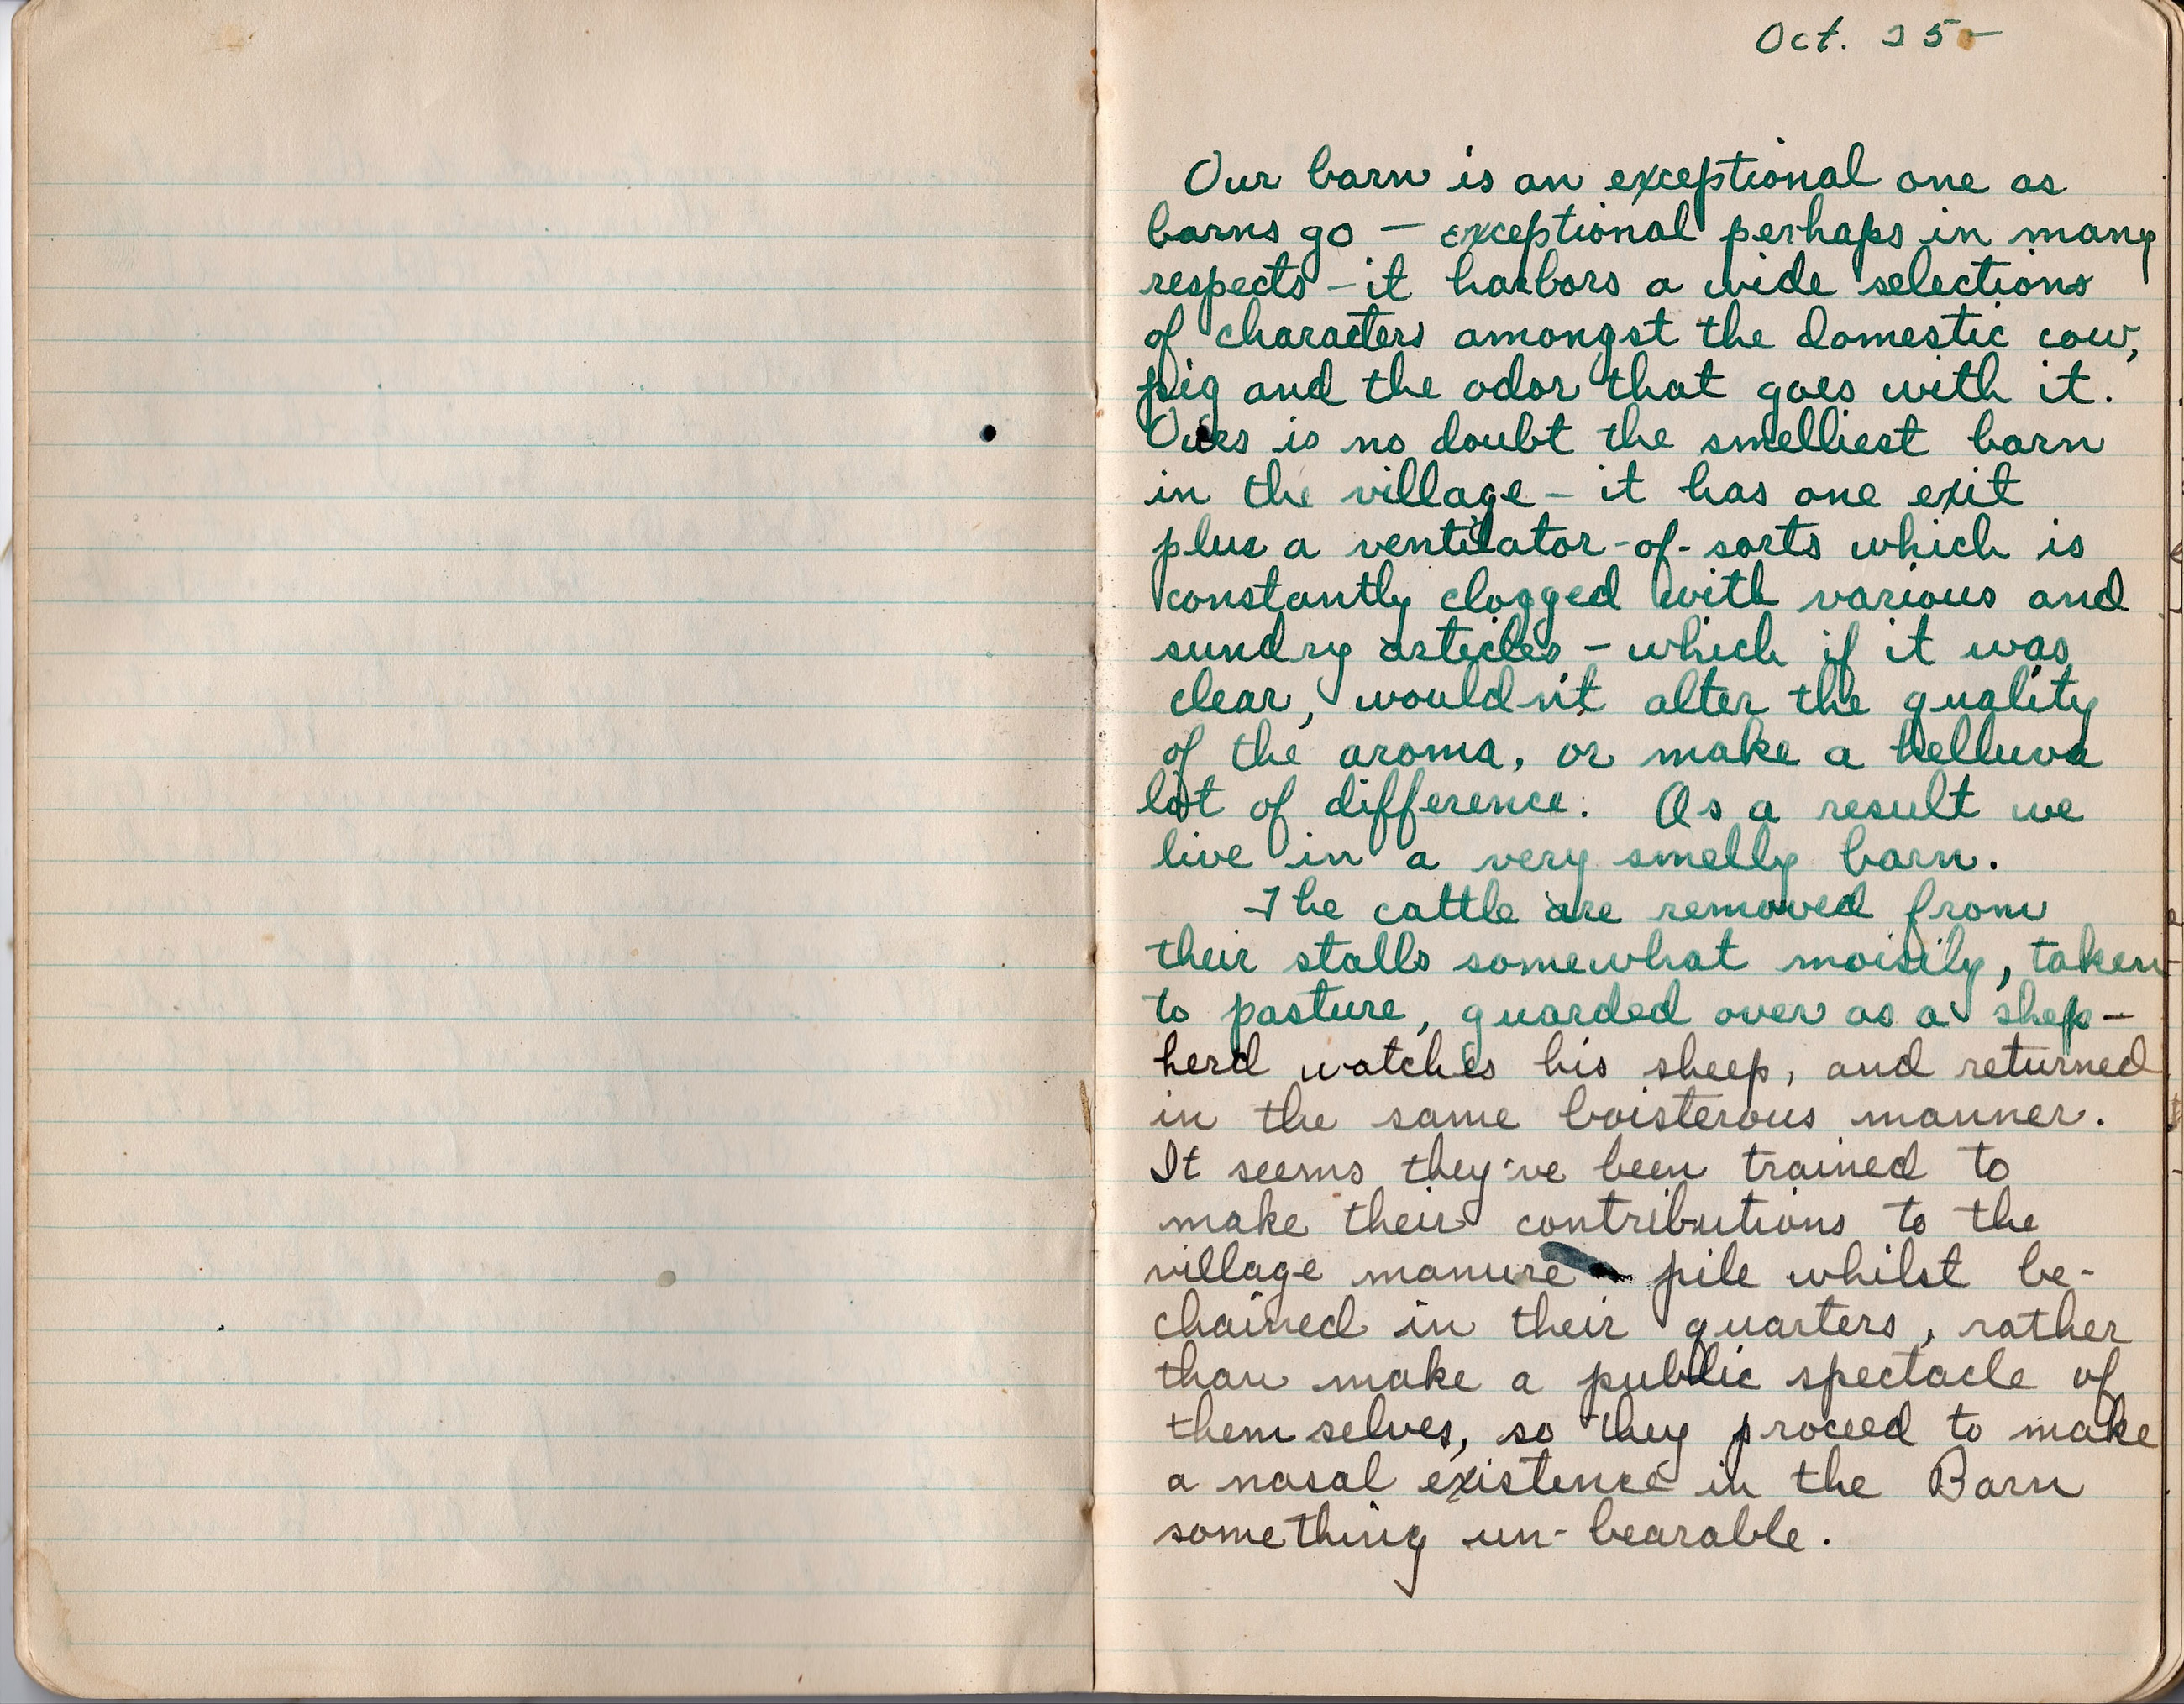 Oct. 25-
Our barn is an exceptional one as
barns go — exceptional perhaps in many
respects - it harbors a wide selections
of characters amongst the domestic cow,
pig and the odor that goes with it.
Ours is no doubt the smelliest barn
in the village - it has one exit
plus a ventilator-of-sorts which is
constantly clogged with various and
sundry articles - which if it was
clear, wouldn't alter the quality
of the aroma, or make a helluva
lot of difference. As a result we
live in a very smelly barn.
The cattle are removed from
their stalls somewhat noisily, taken
to pasture, guarded over as a shep-
herd watches his sheep, and returned
in the same boisterous manner.
It seems they've been trained to
make their contributions to the
village manure pile whilst be-
chained in their quarters, rather
than make a public spectacle of
themselves, so they proceed to make
a nasal existence in the Barn
something un-bearable.